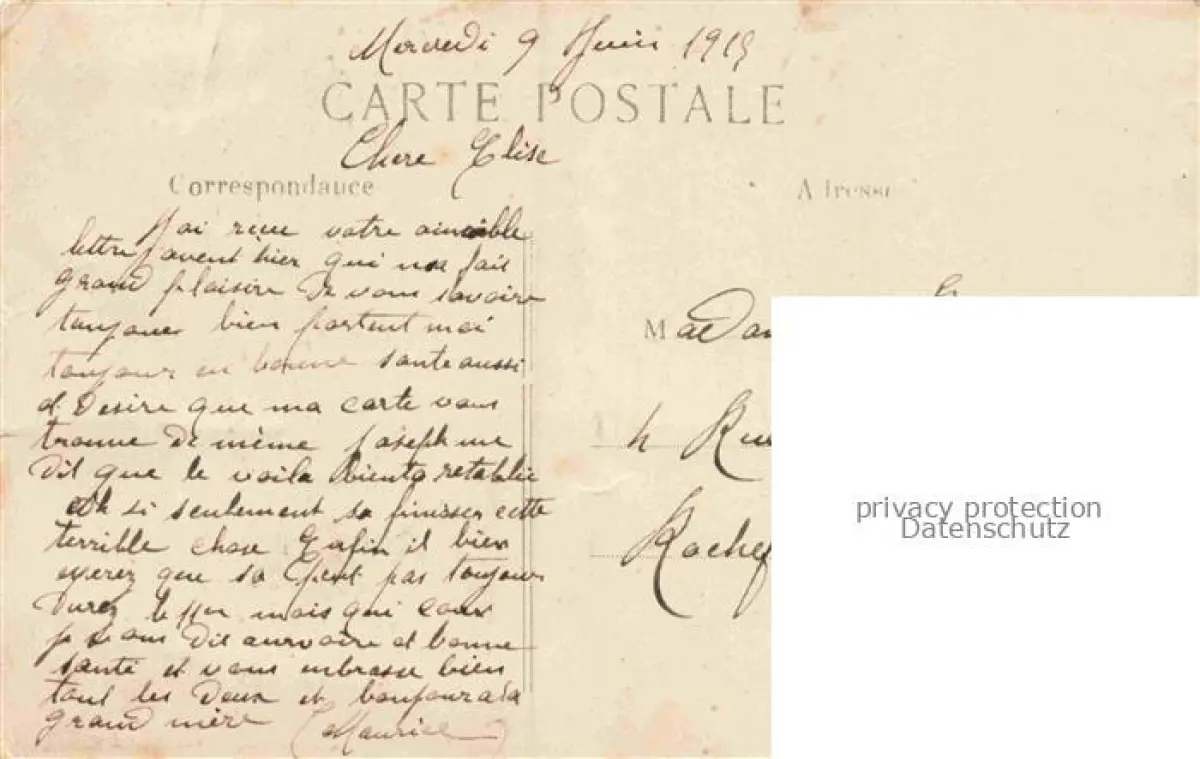 Mercredi 9 Juin 1915
CARTE POSTALE
Chere Elise
Correspondance
Adresse
J'ai reçue votre aimable
lettre javent hier qui me fait
grand plaisire de vous savoire
toujours bien portent moi
toujours en bonne sante aussi
et desire que ma carte vous
trouve de même Joseph me
dit que le voila biento retablie
si seulement sa finisser cette
terrible chose Enfin il bien
esperez que sa peut pas toujours
durez mais qui
je vous dit aurvoire et bonne
santé et vous enbrasse bien
tout les deux et bonjour a la
grand mère Maurice
Madam
4 Rue
Rochef
privacy protection
Datenschutz